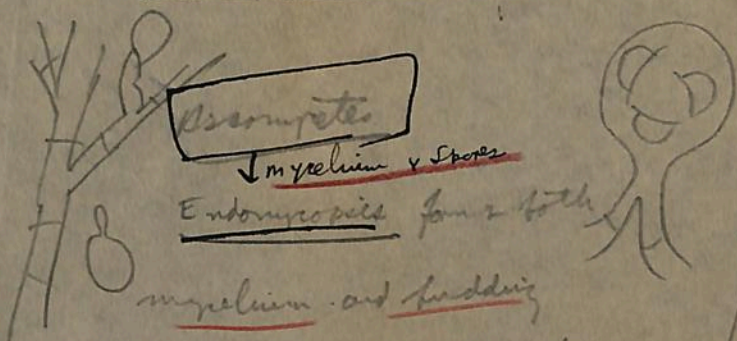 Ascomycetes
↓ mycelium & Spores
Endomycopsis forms both
mycelium and budding